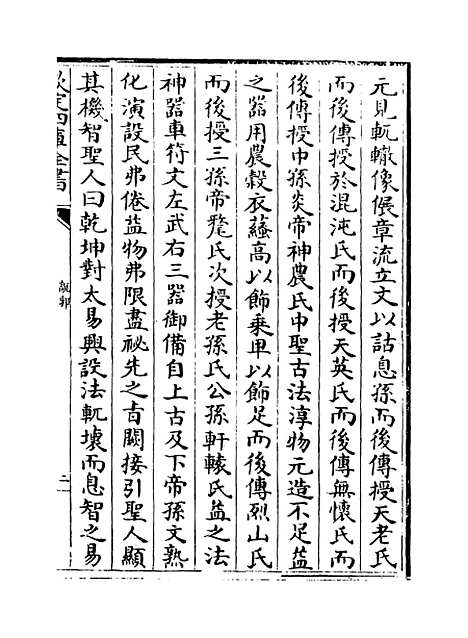 元見䡄轍像偯章流立文以詁息孫而後傳授天老氏
而後傳授於混沌氏而後授天英氏而後傳無懷氏而
後傳授中孫炎帝神農氏中聖古法淳物元造不足益
之器用農穀衣蘊高以飾乗卑以飾足而後傳烈山氏
而後授三孫帝釐氏次授老孫氏公孫軒轅氏益之法
神器車符文左武右三器御備自上古及下帝孫文熟
化演設民弗倦益物弗限盡祕先之㫖闢接引聖人顯
其機智聖人曰乾坤對太易興設法䡄壊而息智之易
欽定四庫全書
二